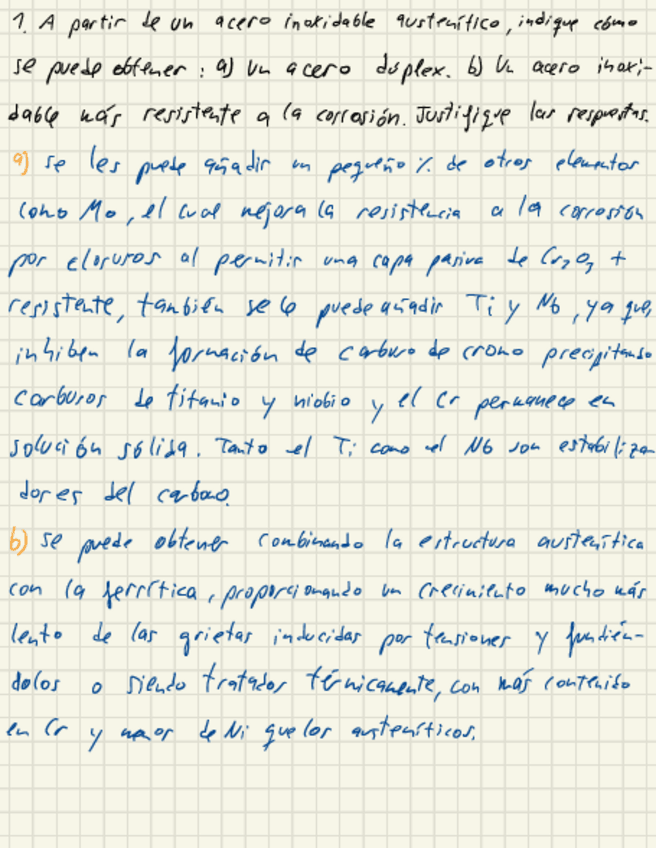 1. A partir de un acero inoxidable austenítico, indique cómo
se puede obtener: a) Un acero dúplex. b) Un acero inoxi-
dable más resistente a la corrosión. Justifique las respuestas.
a) se les puede añadir un pequeño % de otros elementos
como Mo, el cual mejora la resistencia a la corrosión
por cloruros al permitir una capa pasiva de Cr₂O₃ +
resistente, también se le puede añadir Ti y Nb, ya que,
inhiben la formación de carburo de cromo precipitando
carburos de titanio y niobio y el Cr permanece en
solución sólida. Tanto el Ti como el Nb son estabiliza-
dores del carbono.
b) se puede obtener combinando la estructura austenítica
con la ferrítica, proporcionando un crecimiento mucho más
lento de las grietas inducidas por tensiones y fundién-
dolos o siendo tratados térmicamente, con más contenido
en Cr y menor de Ni que los austeníticos.